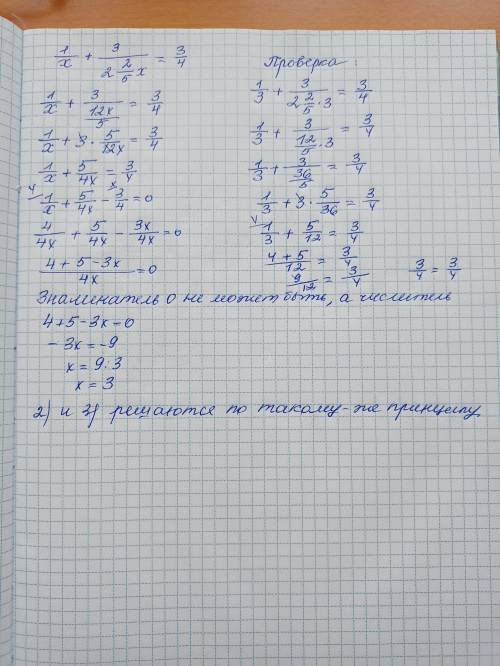 1/x + 3/(2 2/5 x) = 3/4
1/x + 3/(12x/5) = 3/4
1/x + 3 · 5/12x = 3/4
1/x + 5/4x = 3/4
4/ 1/x + 5/4x - x/ 3/4 = 0
4/4x + 5/4x - 3x/4x = 0
(4 + 5 - 3x)/4x = 0
Проверка:
1/3 + 3/(2 2/5 · 3) = 3/4
1/3 + 3/(12/5 · 3) = 3/4
1/3 + 3/(36/5) = 3/4
1/3 + 3 · 5/36 = 3/4
4/ 1/3 + 5/12 = 3/4
(4 + 5)/12 = 3/4
9/12 = 3/4 3/4 = 3/4
Знаминатель 0 не может быть, а числитель
4 + 5 - 3x = 0
- 3x = -9
x = 9:3
x = 3
2) и 3) решаются по такому-же принципу